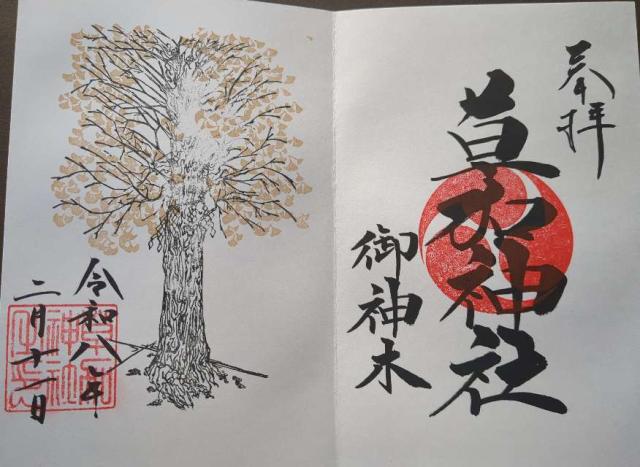 奉拝
草加神社
御神木
令和八年
二月十一日